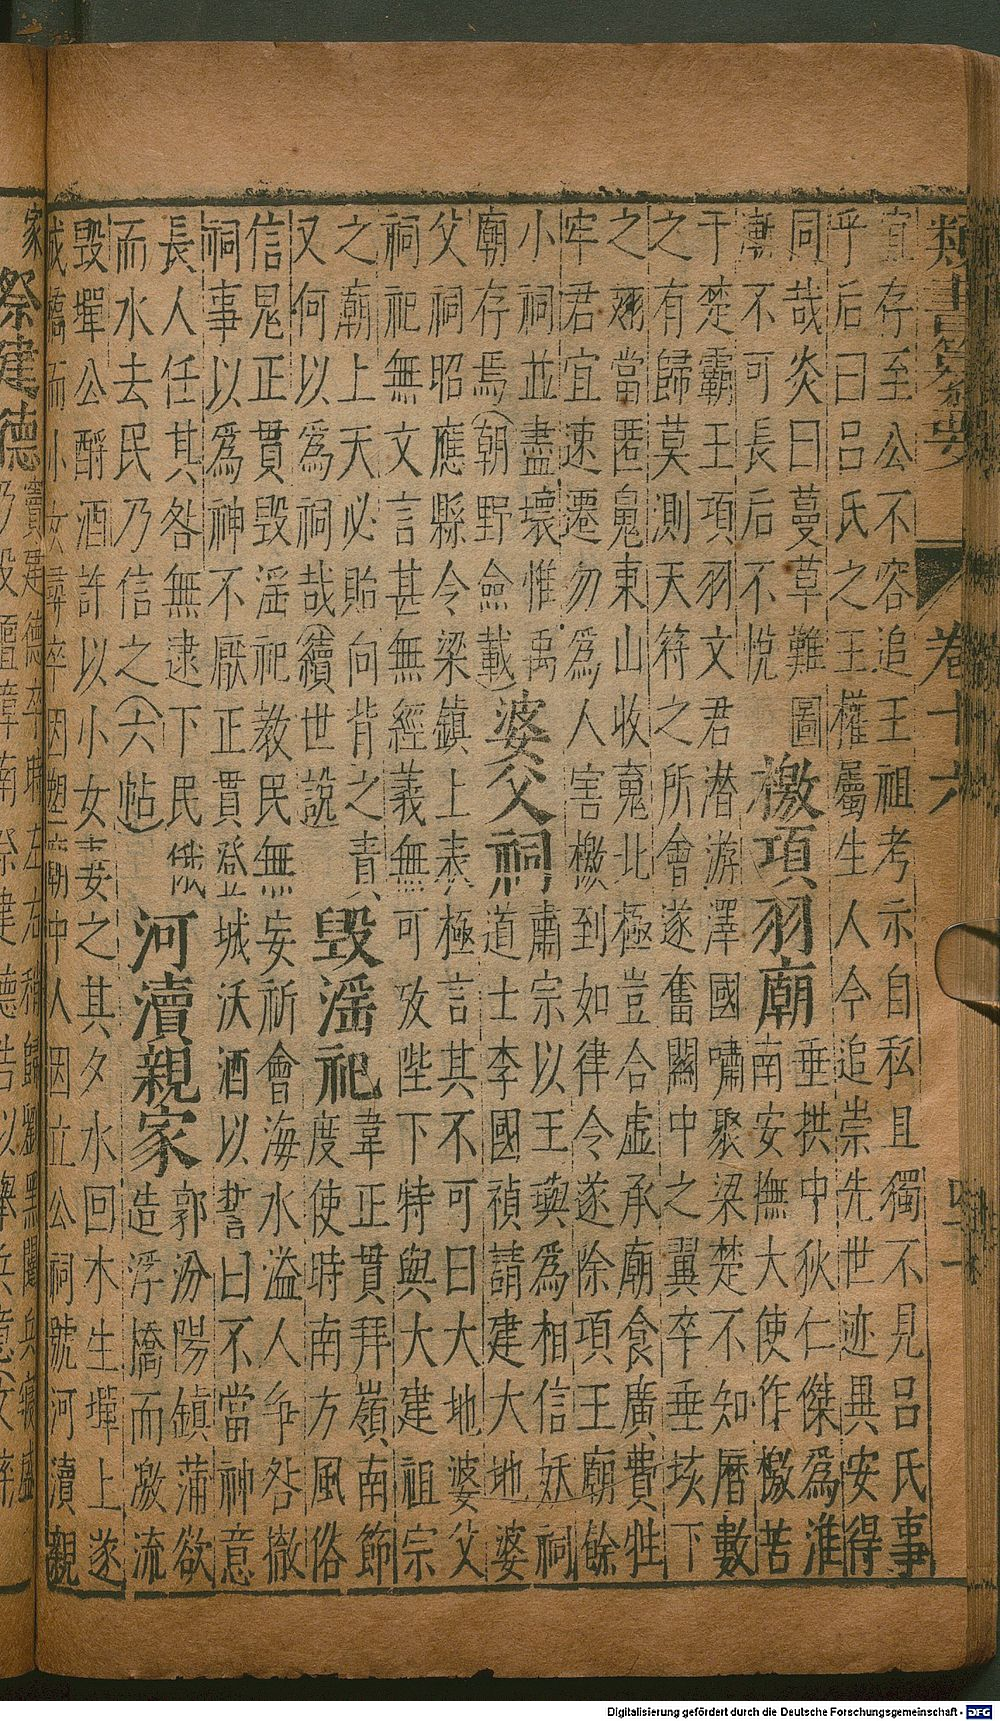 類書纂要 卷十六 四十一
宜存至公不容追王祖考示自私且獨不見呂氏事
乎后曰呂氏之王權屬生人今追崇先世迹異安得
同哉炎曰蔓草難圖
漸不可長后不悅
檄項羽廟
垂拱中狄仁傑為淮
南安撫大使作檄苦
于楚霸王項羽文君潜游澤國嘯聚梁楚不知曆數
之有歸莫測天符之所會遂奮關中之翼卒垂垓下
之翅當匿䰟東山收䰟北極豈合虛承廟食廣費牲
牢君宜速遷勿爲人害檄到如律令遂除項王廟餘
小祠並盡壞惟禹
廟存焉(朝野僉載)
婆父祠
肅宗以王璵爲相信妖祠
道士李國禎請建大地婆
父祠昭應縣令梁鎮上表極言其不可曰大地婆父
祠祀無文言甚無經義無可攷陛下特與大建祖宗
之廟上天必貽向背之責
又何以爲祠哉(續世說)
毀滛祀
韋正貫拜嶺南節
度使時南方風俗
信鬼正貫毀滛祀教民無妄祈會海水溢人爭咎撤
祠事以爲神不厭正貫登城沃酒以誓曰不當神意
長人任其咎無逮下民俄
而水去民乃信之(六帖)
河瀆親家
郭汾陽鎮蒲欲
造浮橋而激流
毀墠公酹酒許以小女妻之其夕水回木生墠上遂
成橋而小女尋卒因塑廟中人因立公祠號河瀆親
家
祭建德
Digitalisierung gefördert durch die Deutsche Forschungsgemeinschaft - DFG